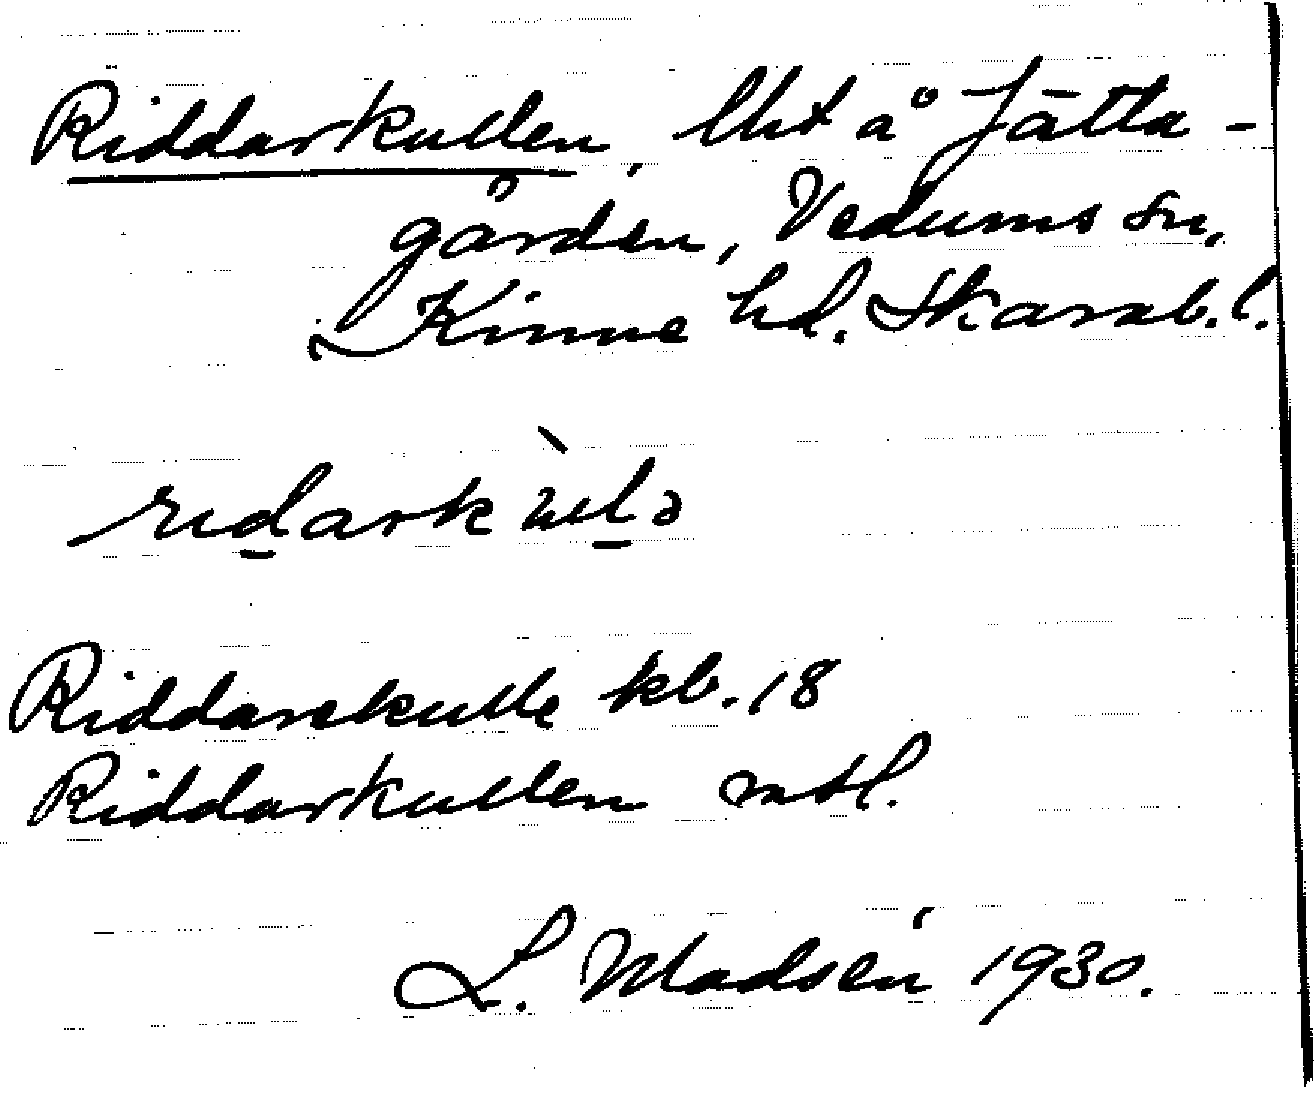 Riddarkullen, lht å Jätta-
gården, Vedums sn,
Kinne hd. Skarab. l.
ridarkùlə
Riddarekulle kb. 18
Riddarkullen mtl.
L. Madsén 1930.